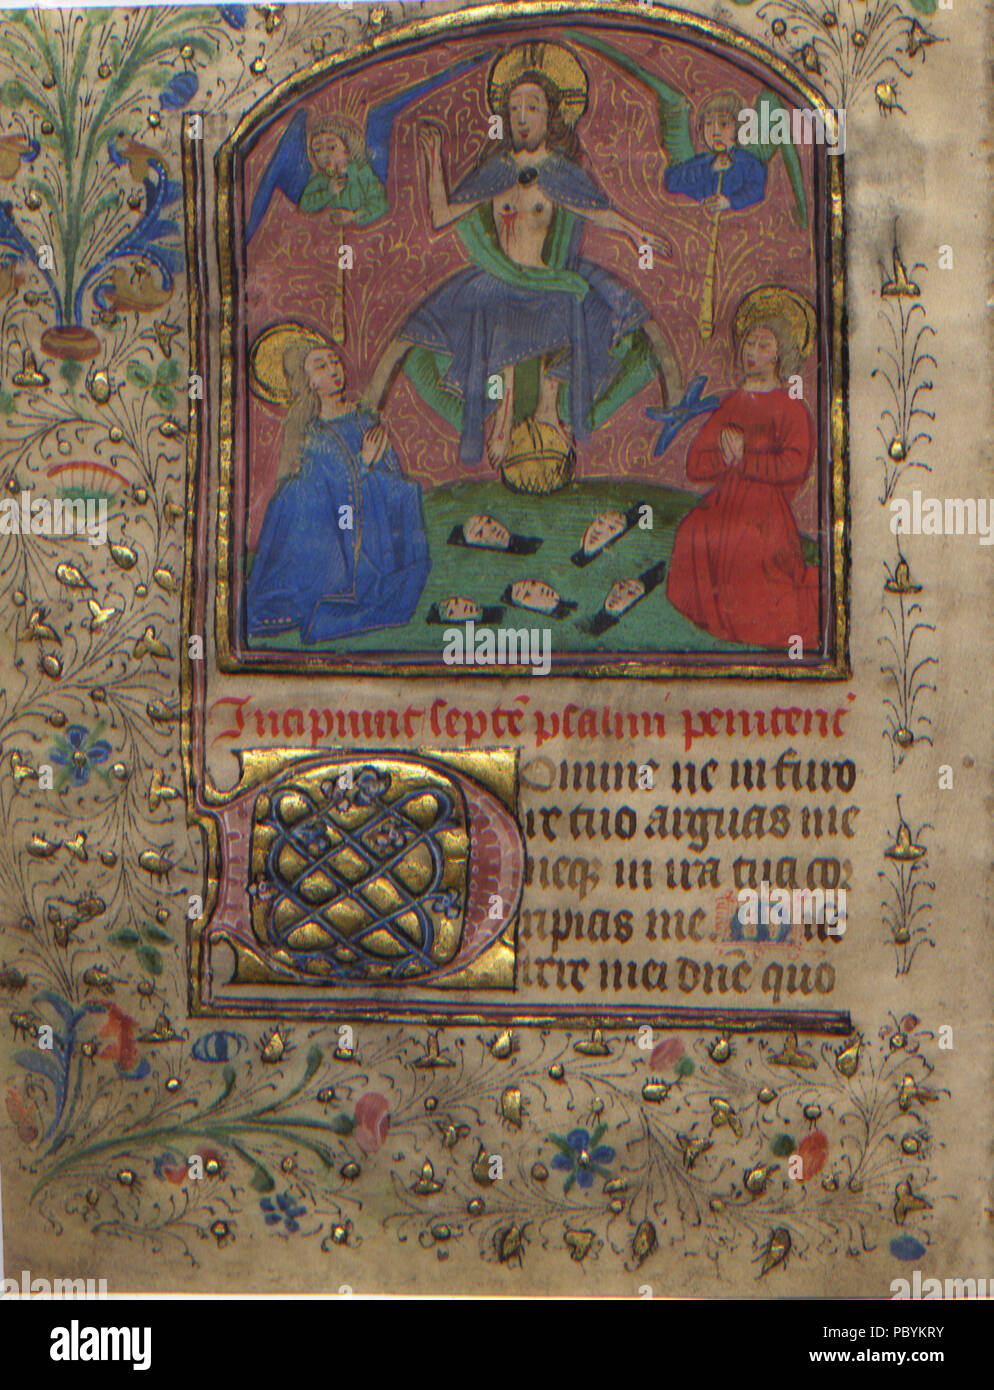 Incipiunt septē psalmi penitenc̄
Domine ne in furo
re tuo arguas me
neqꝫ in ira tua cor
ripias me. Mise
rere mei dn̄e quo
alamy
Image ID: PBYKRY
www.alamy.com